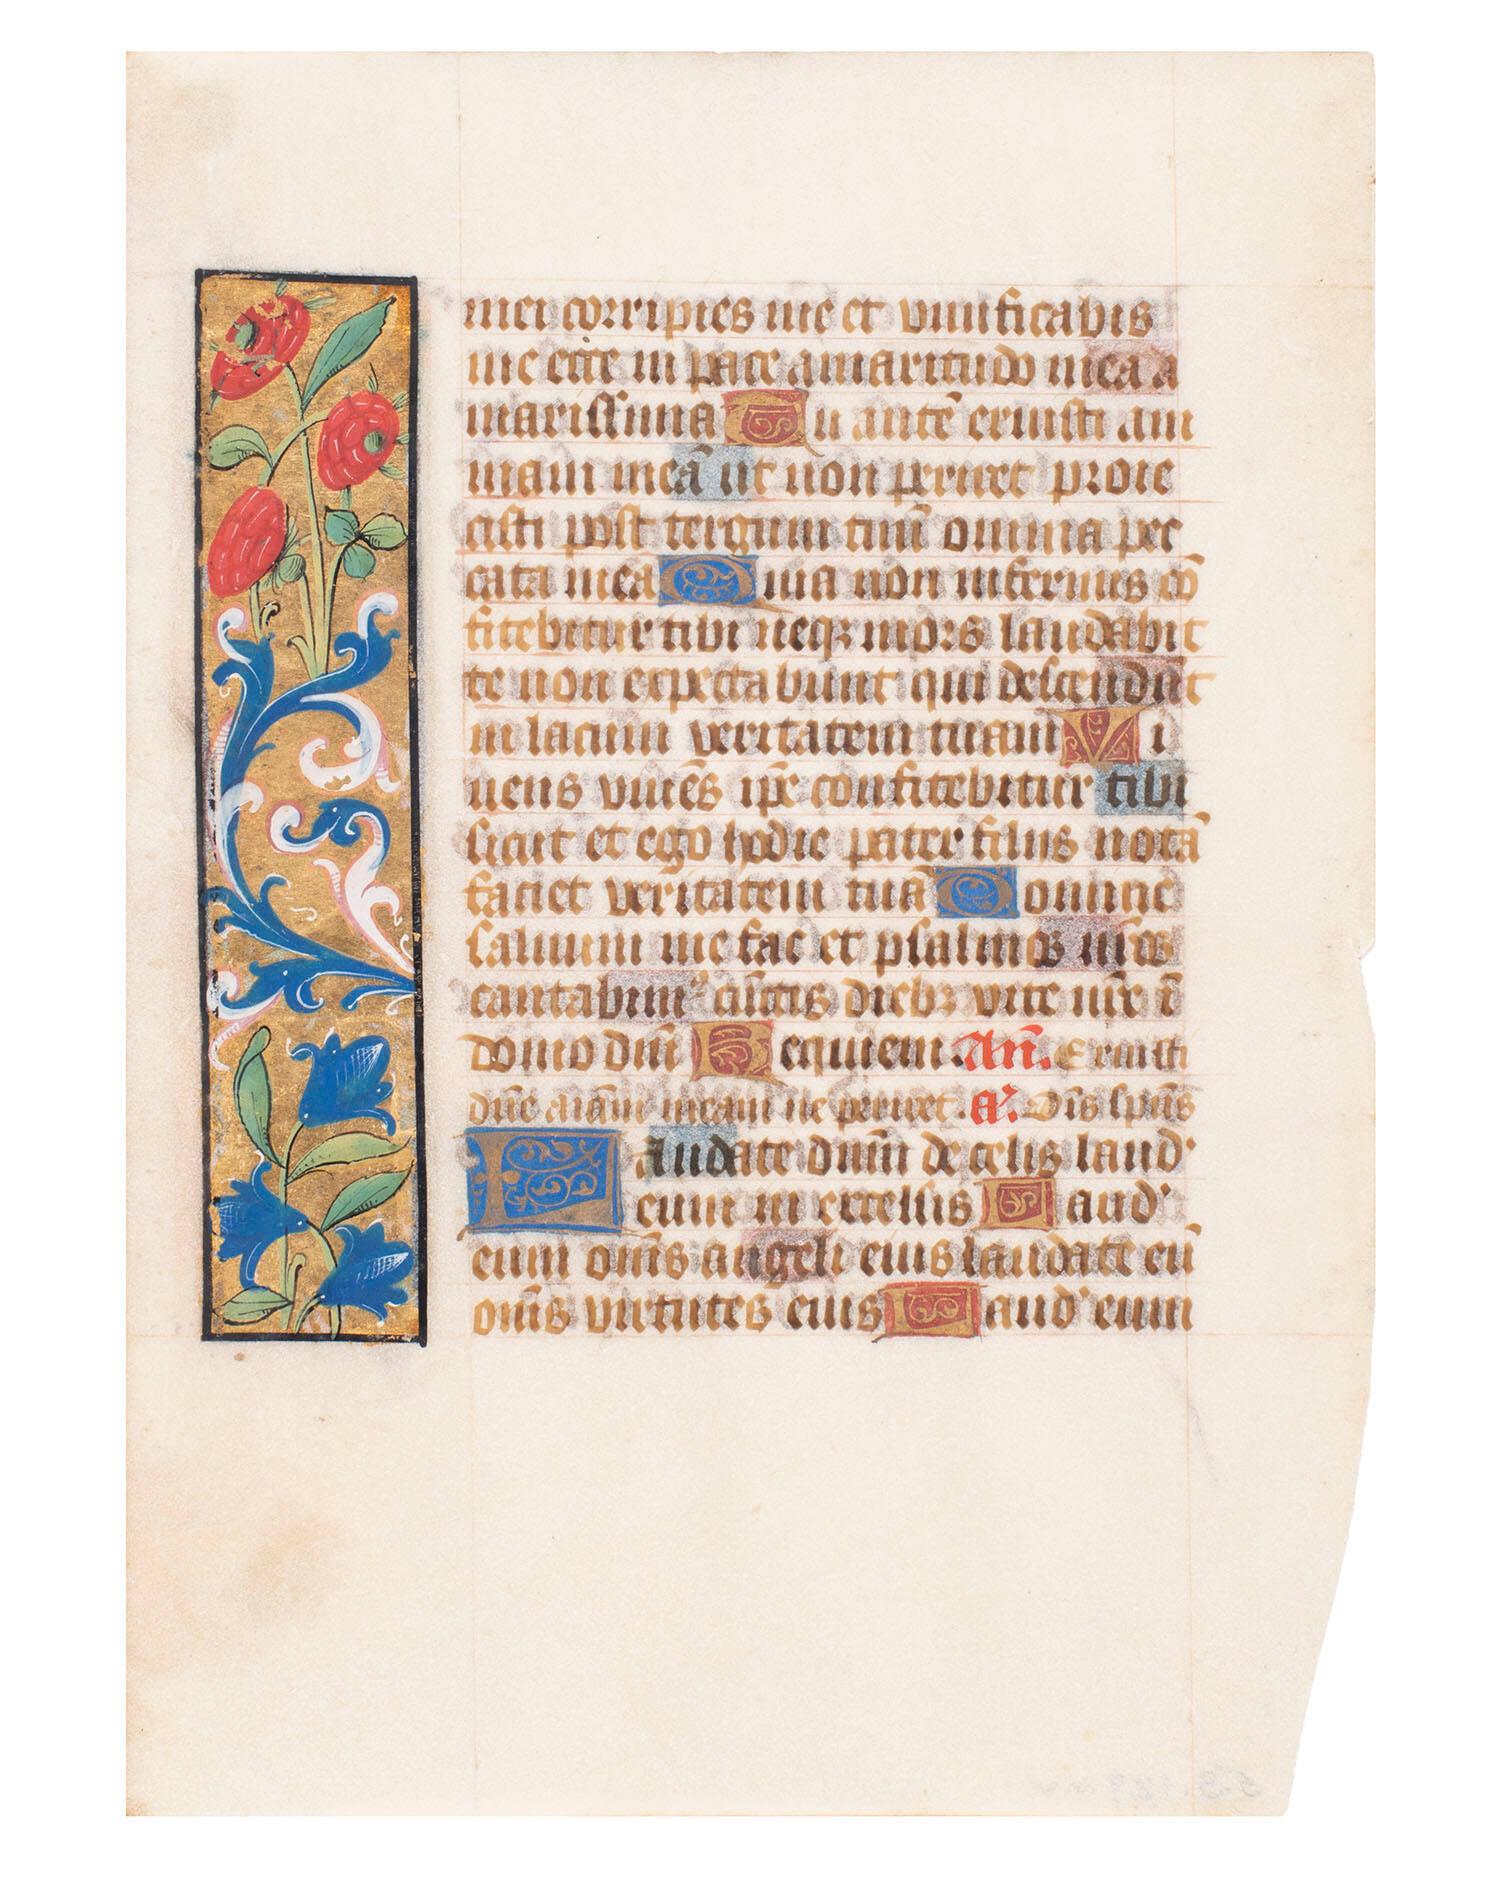 mei corripies me et viuificabis
me ecce in pace amaritudo mea a
marissima Tu autē eruisti ani
mam meā ut non periret proie
cisti post tergum tuū omnia pec
cata mea Quia non infernus cō
fitebitur tibi neqꝫ mors laudabit
te non expectabunt qui descendūt
in lacum veritatem tuam Vi
uens viuēs ip̄e confitebitur tibi
sicut et ego hodie pater filijs notā
faciet veritatem tuā Domine
saluum me fac et psalmos nr̄os
cantabimꝰ cūctis diebꝫ vite nr̄e ī
domo dn̄i Requiem. An̄. Eruisti
dn̄e aīam meam ne periret. a'. Om̄s sp̄us
Laudate dn̄m de celis laud'
eum in excelsis Laud'
eum om̄s angeli eius laudate eū
om̄s virtutes eius Laud' eum